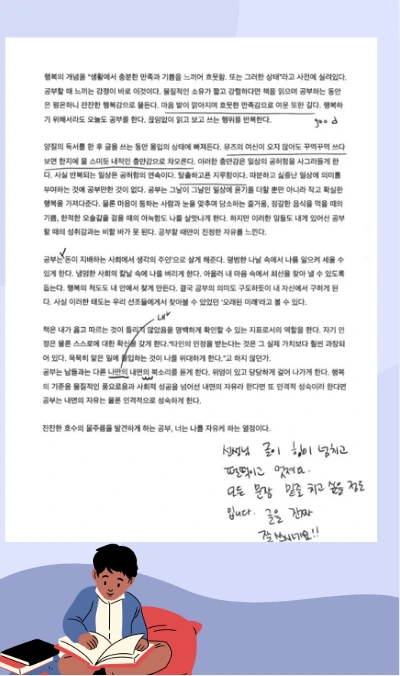 행복의 개념을 "생활에서 충분한 만족과 기쁨을 느끼어 흐뭇함. 또는 그러한 상태"라고 사전에 실려있다.
공부할 때 느끼는 감정이 바로 이것이다. 물질적인 소유가 짧고 강렬하다면 책을 읽으며 공부하는 동안
은 평온하니 잔잔한 행복감으로 물든다. 마음 밭이 맑아지며 흐뭇한 만족감으로 여운 또한 길다. 행복하
기 위해서라도 오늘도 공부를 한다. 끊임없이 읽고 보고 쓰는 행위를 반복한다.
good
양질의 독서를 한 후 글을 쓰는 동안 몰입의 상태에 빠져든다. 뮤즈의 여신이 오지 않아도 꾸역꾸역 쓰다
보면 한지에 물 스미듯 내적인 충만감으로 차오른다. 이러한 충만감은 일상의 공허함을 사그라들게 한
다. 사실 반복되는 일상은 공허함의 연속이다. 탈출하고픈 지루함이다. 따분하고 싫증난 일상에 의미를
부여하는 것에 공부만한 것이 없다. 공부는 그날이 그날인 일상에 윤기를 더할 뿐만 아니라 작고 확실한
행복을 가져다준다. 물론 마음이 통하는 사람과 눈을 맞추며 담소하는 즐거움, 정갈한 음식을 먹을 때의
기쁨, 한적한 오솔길을 걸을 때의 아늑함도 나를 살맛나게 한다. 하지만 이러한 일들도 내게 있어선 공부
할 때의 성취감과는 비할 바가 못 된다. 공부할 때만이 진정한 자유를 느낀다.
공부는 돈이 지배하는 사회에서 생각의 주인'으로 살게 해준다. 평범한 나날 속에서 나를 일으켜 세울 수
있게 한다. 냉엄한 사회의 칼날 속에 나를 버리게 한다. 아울러 내 마음 속에서 최선을 찾아 낼 수 있도록
돕는다. 행복의 척도도 내 안에서 찾게 만든다. 결국 공부의 의미도 구도하듯이 내 자신에서 구하게 된
다. 사실 이러한 태도는 우리 선조들에게서 찾아볼 수 있었던 '오래된 미래'라고 볼 수 있다.
내
책은 내가 옳고 따르는 것이 틀리지 않았음을 명백하게 확인할 수 있는 지표로서의 역할을 한다. 자기 인
정은 물론 스스로에 대한 확신을 갖게 한다."타인의 인정을 받는다는 것은 그 실제 가치보다 훨씬 과장되
어 있다. 묵묵히 맡은 일에 몰입하는 것이 나를 위대하게 한다."고 하지 않던가.
공부는 남들과는 다른 나만의 내면의 북소리를 듣게 한다. 위엄이 있고 당당하게 걸어 나가게 한다. 행복
의 기준을 물질적인 풍요로움과 사회적 성공을 넘어선 내면의 자유라 한다면 또 인격적 성숙이라 한다면
공부는 내면의 자유는 물론 인격적으로 성숙하게 한다.
잔잔한 호수의 물주름을 발견하게 하는 공부, 너는 나를 자유케 하는 열정이다.
선생님 글이 힘이 넘치고
펄떡이고 있어요.
모든 문장 밑줄 치고 싶을 정도
입니다. 글을 진짜
잘 쓰시네요!!